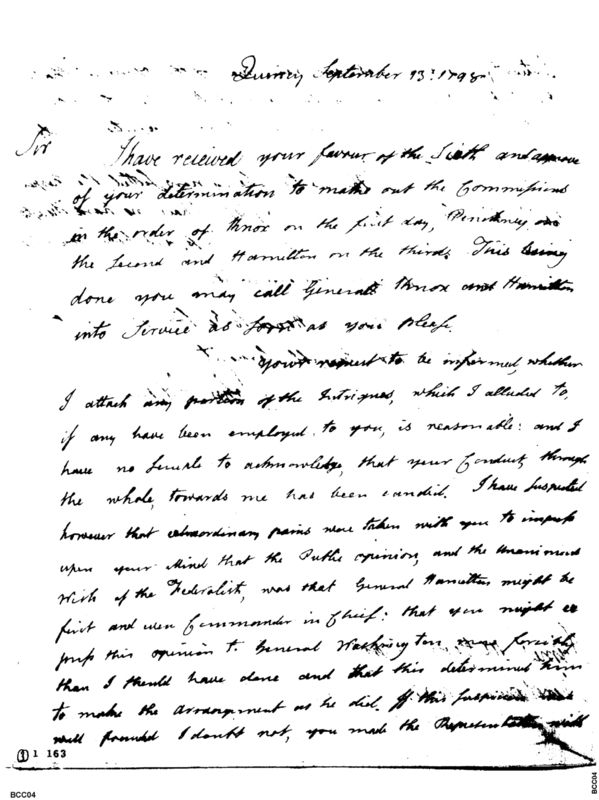 Quincy September 13. 1798
Sir
I have received your favour of the Sixth and approve
of your determination to make out the Commissions
in the order of Knox on the first day, Pinckney on
the Second and Hamilton on the third. This being
done you may call Generals Knox and Hamilton
into Service as soon as you please.
Your request to be informed, whether
I attach any portion of the Intrigues, which I alluded to,
if any have been employed, to you, is reasonable: and I
have no scruple to acknowledge, that your Conduct, through
the whole, towards me has been candid. I have suspected
however that extraordinary pains were taken with you to impress
upon your mind that the Public opinion, and the Unanimous
Wish of the Federalist, was that General Hamilton might be
first and even Commander in Chief: that you might ex
press this opinion to General Washington more forcibly
than I should have done and that this determined him
to make the arrangement as he did. If this suspicion was
well founded I doubt not, you made the Representation with
1 1 163
BCC04
BCC04